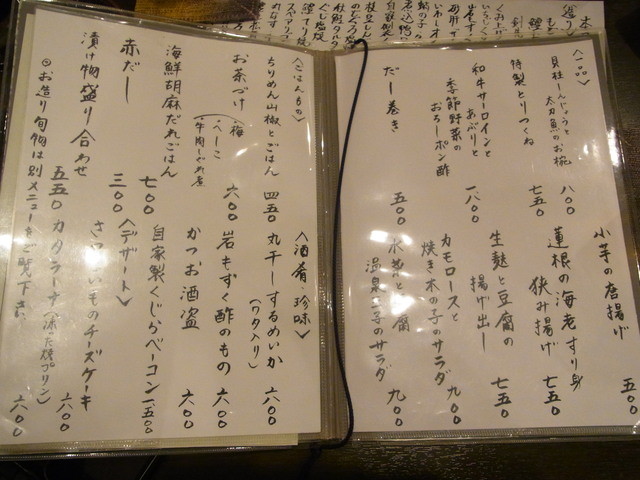 〈一品〉
貝柱しんじょうと
太刀魚のお椀
八〇〇
特製とりつくね
七五〇
和牛サーロインと
あぶりと
季節野菜の
おろしポン酢
一八〇〇
だし巻き
五〇〇
小芋の唐揚げ
五〇〇
蓮根の海老すり身
狭み揚げ
七五〇
生麩と豆腐の
揚げ出し
七五〇
カモロースと
焼き木の子のサラダ
九〇〇
水菜と豆腐
温泉玉子のサラダ
九〇〇
〈ごはんもの〉
ちりめん山椒とごはん
四五〇
お茶づけ
梅
へしこ
牛肉しぐれ煮
六〇〇
海鮮胡麻だれごはん
七〇〇
赤だし
三〇〇
漬け物盛り合わせ
五五〇
◎お造り旬物は別メニューをご覧下さい
〈酒肴・珍味〉
丸干しするめいか
(ワタ入り)
六〇〇
岩もずく酢のもの
六〇〇
かつお酒盗
六〇〇
自家製くじらベーコン
一五〇〇
〈デザート〉
さつまいものチーズケーキ
六〇〇
カタラーナ(凍った焼プリン)
六〇〇